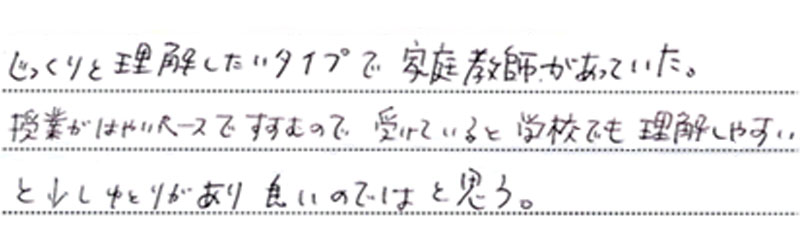 じっくりと理解したいタイプで家庭教師があっていた。
授業がはやいペースですすむので受けていると学校でも理解しやすい
と少しゆとりがあり良いのではと思う。